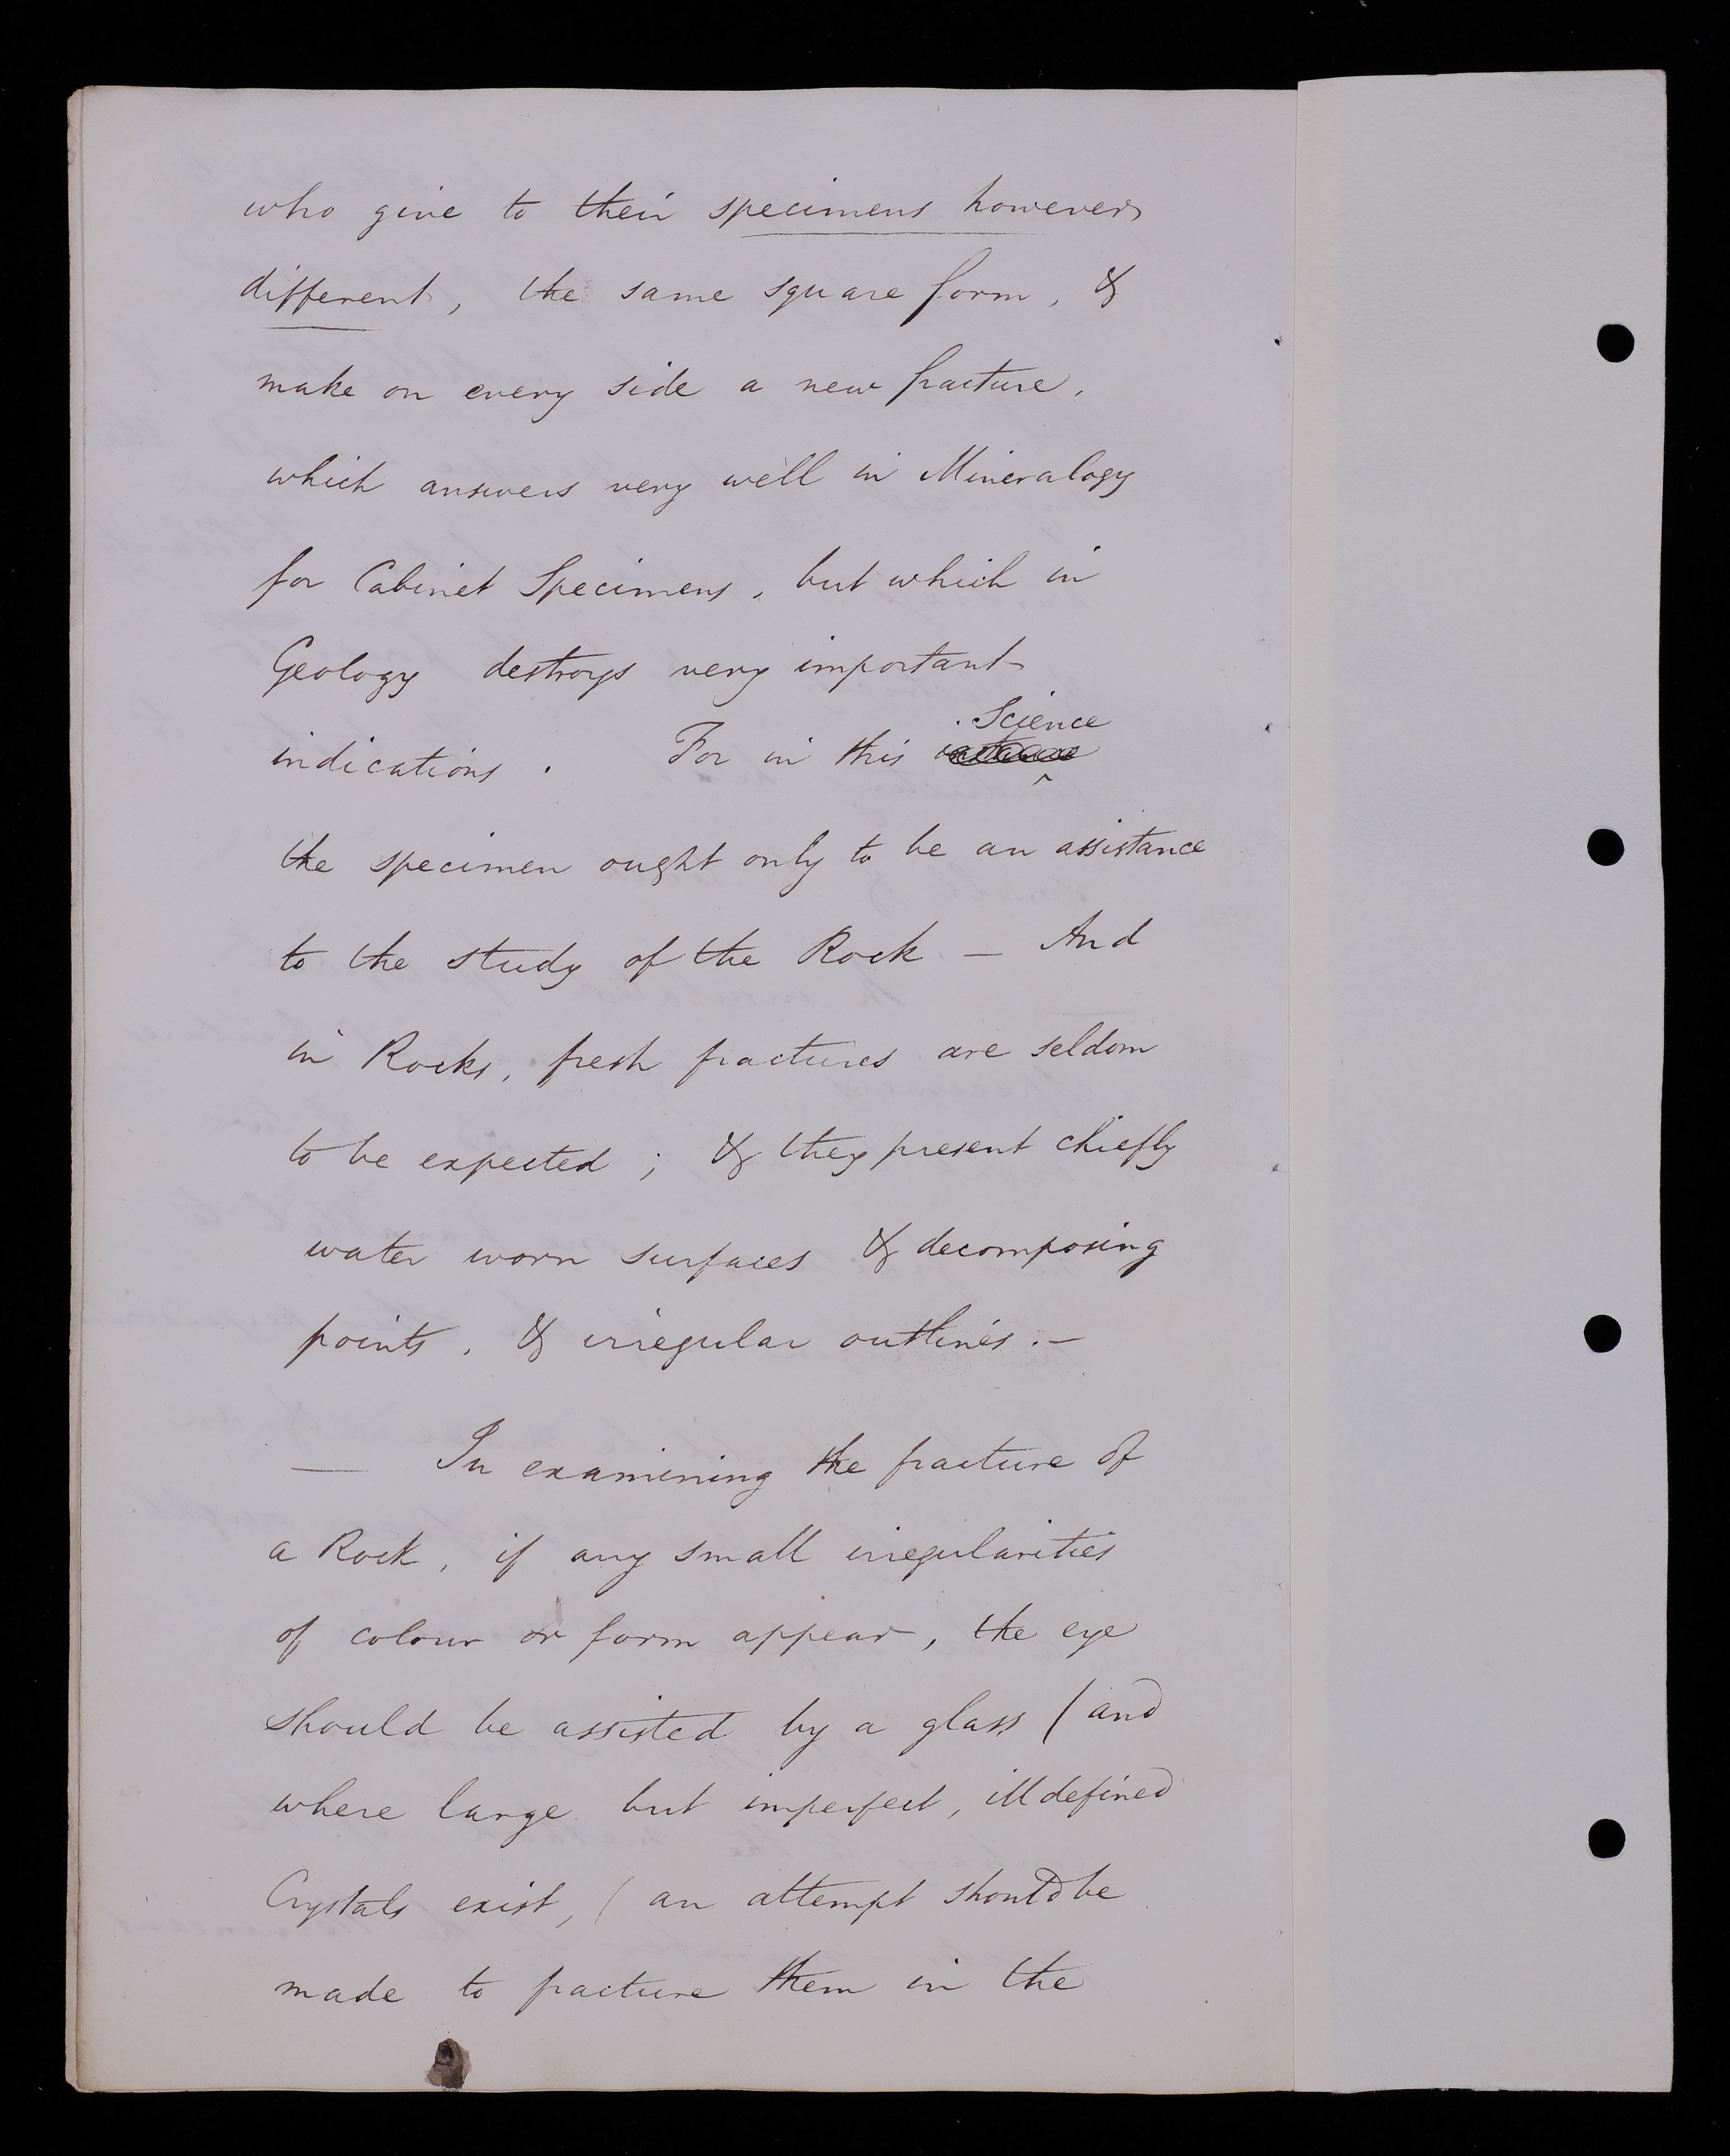 who give to their specimens however
different, the same square form, &
make on every side a new fracture,
which answers very well in Mineralogy
for Cabinet Specimens, but which in
Geology destroys very important
indications. For in this Science
the specimen ought only to be an assistance
to the study of the Rock — And
in Rocks, fresh fractures are seldom
to be expected; & they present chiefly
water worn surfaces & decomposing
points, & irregular outlines.—
— In examining the fracture of
a Rock, if any small irregularities
of colour or form appear, the eye
should be assisted by a glass (and
where large but imperfect, ill defined
Crystals exist, ( an attempt should be
made to fracture them in the